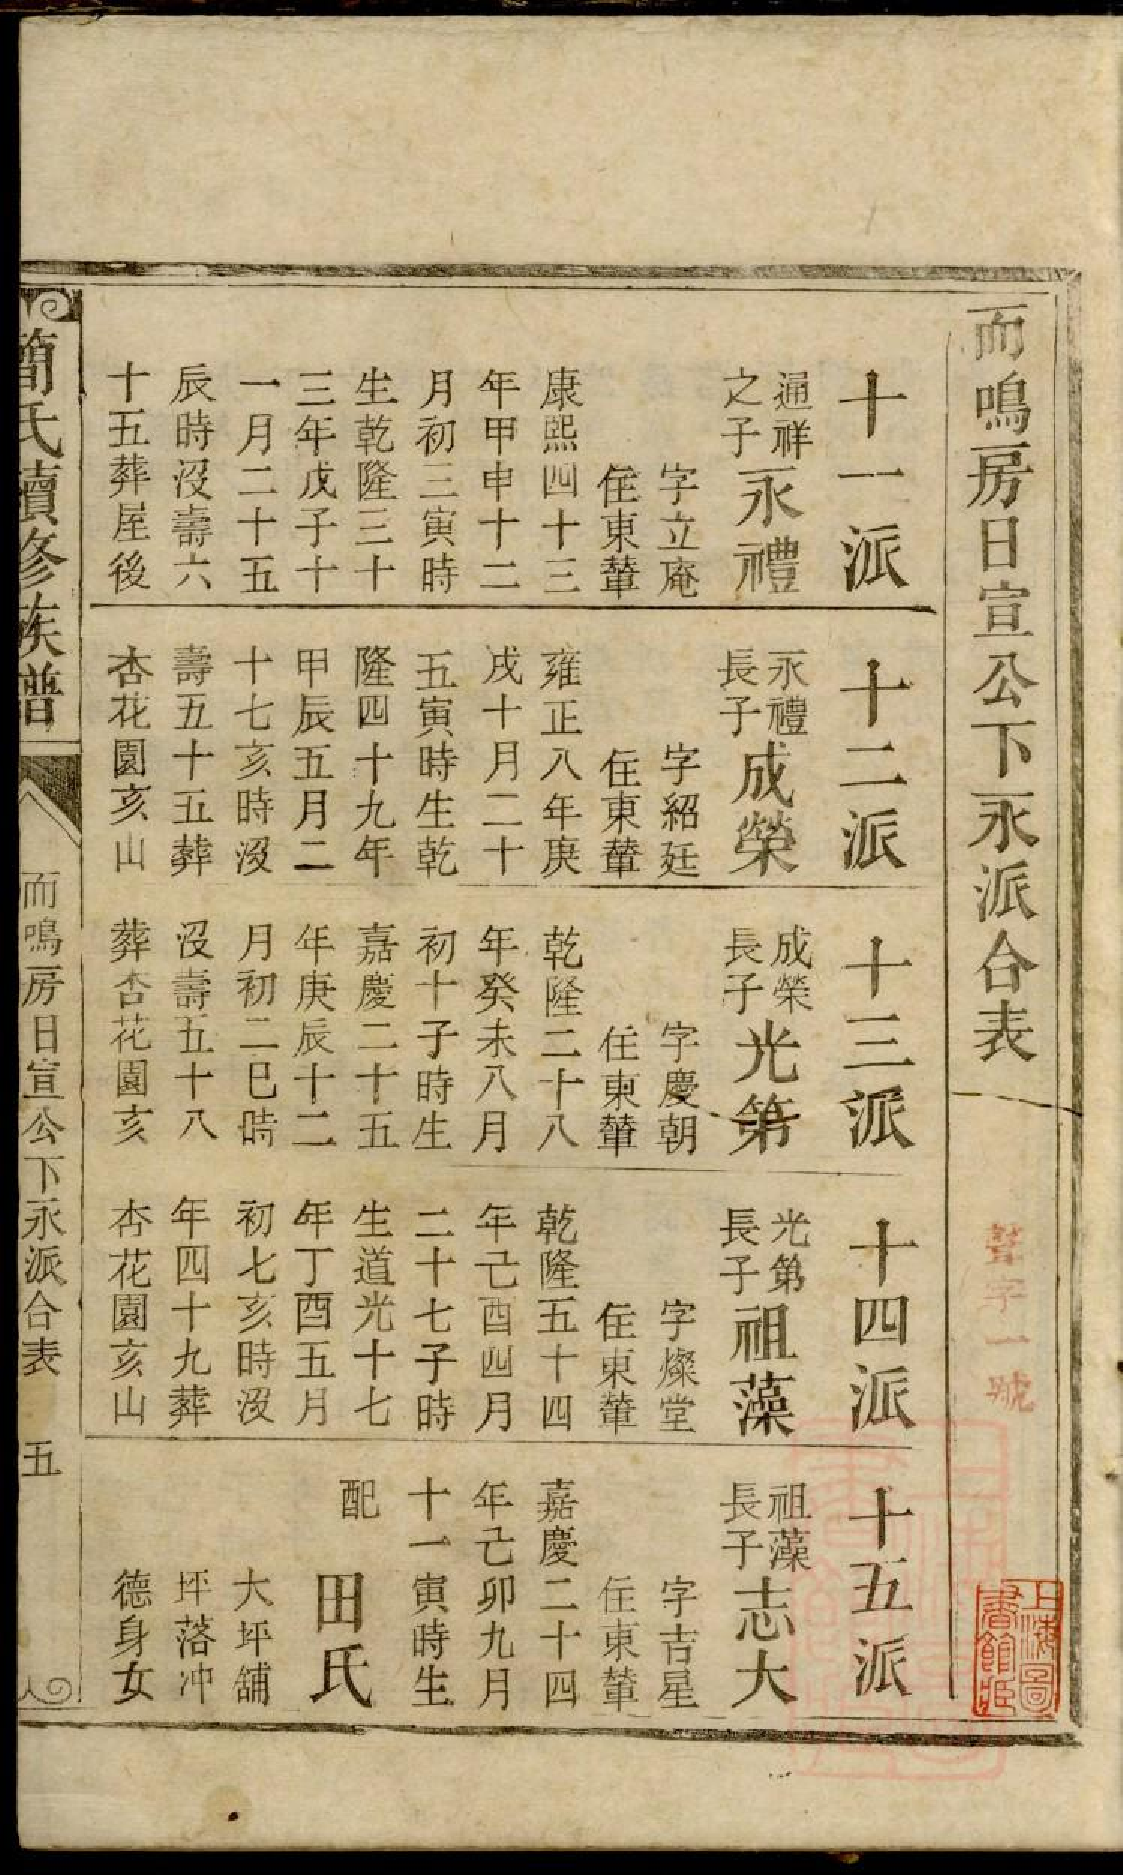 而鳴房日宣公下永派合表
聱字一號
上海圖書館藏
十一派
通祥之子永禮
字立庵
住東輦
康熙四十三
年甲申十二
月初三寅時
生乾隆三十
三年戊子十
一月二十五
辰時沒壽六
十五葬屋後
十二派
永禮長子成榮
字紹廷
住東輦
雍正八年庚
戌十月二十
五寅時生乾
隆四十九年
甲辰五月二
十七亥時沒
壽五十五葬
杏花園亥山
十三派
成榮長子光第
字慶朝
住東輦
乾隆二十八
年癸未八月
初十子時生
嘉慶二十五
年庚辰十二
月初二巳時
沒壽五十八
葬杏花園亥
十四派
光第長子祖藻
字燦堂
住東輦
乾隆五十四
年己酉四月
二十七子時
生道光十七
年丁酉五月
初七亥時沒
年四十九葬
杏花園亥山
十五派
祖藻長子志大
字吉星
住東輦
嘉慶二十四
年己卯九月
十一寅時生
配田氏
大坪舖
坪落冲
德身女
簡氏續修族譜
而鳴房日宣公下永派合表 五